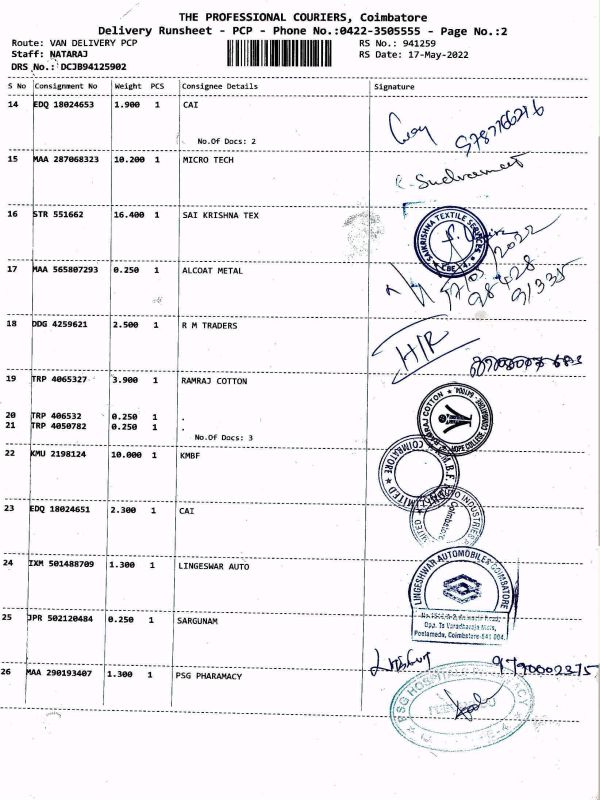 THE PROFESSIONAL COURIERS, Coimbatore
Delivery Runsheet - PCP - Phone No.:0422-3505555 - Page No.:2
Route: VAN DELIVERY PCP RS No.: 941259
Staff: NATARAJ RS Date: 17-May-2022
DRS No.: DCJB94125902
S No Consignment No Weight PCS Consignee Details Signature
14 EDQ 18024653 1.900 1 CAI
No.Of Docs: 2
15 MAA 287068323 10.200 1 MICRO TECH
16 STR 551662 16.400 1 SAI KRISHNA TEX
SAIKRISHNA TEXTILE SERVICES
CBE-4
17 MAA 565807293 0.250 1 ALCOAT METAL
18 DDG 4259621 2.500 1 R M TRADERS
H/R
19 TRP 4065327 3.900 1 RAMRAJ COTTON
RAMRAJ COTTON
20 TRP 406532 0.250 1 .
21 TRP 4050782 0.250 1 .
No.Of Docs: 3
22 KMU 2198124 10.000 1 KMBF
COIMBATORE
LIMITED
23 EDQ 18024651 2.300 1 CAI
INDUSTRIES
Coimbatore
24 IXM 501488709 1.300 1 LINGESWAR AUTO
LINGESHWAR AUTOMOBILES COIMBATORE
Opp. To Varadharaja Mills,
Peelamedu, Coimbatore-641 004.
25 JPR 502120484 0.250 1 SARGUNAM
9790002375
26 MAA 290193407 1.300 1 PSG PHARAMACY
PSG HOSPITALS PHARMACY